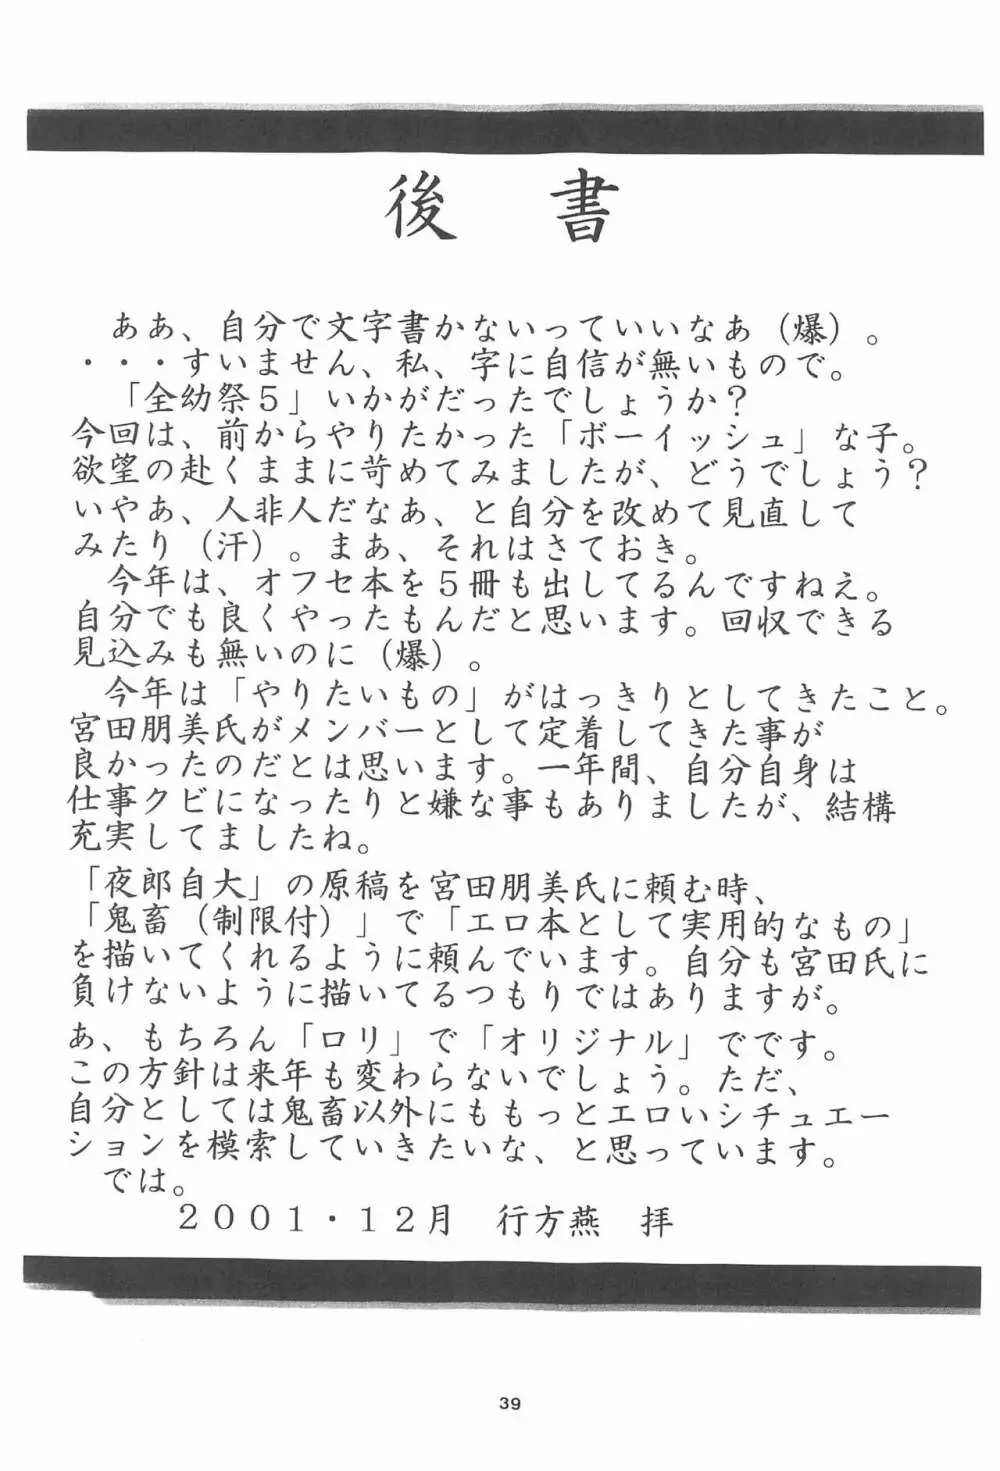 後書
ああ、自分で文字書かないっていいなあ（爆）。
・・・すいません、私、字に自信が無いもので。
「全幼祭５」いかがだったでしょうか？
今回は、前からやりたかった「ボーイッシュ」な子。
欲望の赴くままに苛めてみましたが、どうでしょう？
いやあ、人非人だなあ、と自分を改めて見直して
みたり（汗）。まあ、それはさておき。
今年は、オフセ本を５冊も出してるんですねえ。
自分でも良くやったもんだと思います。回収できる
見込みも無いのに（爆）。
今年は「やりたいもの」がはっきりとしてきたこと。
宮田朋美氏がメンバーとして定着してきた事が
良かったのだとは思います。一年間、自分自身は
仕事クビになったりと嫌な事もありましたが、結構
充実してましたね。
「夜郎自大」の原稿を宮田朋美氏に頼む時、
「鬼畜（制限付）」で「エロ本として実用的なもの」
を描いてくれるように頼んでいます。自分も宮田氏に
負けないように描いてるつもりではありますが。
あ、もちろん「ロリ」で「オリジナル」でです。
この方針は来年も変わらないでしょう。ただ、
自分としては鬼畜以外にももっとエロいシチュエー
ションを模索していきたいな、と思っています。
では。
２００１・１２月　行方燕　拝
39